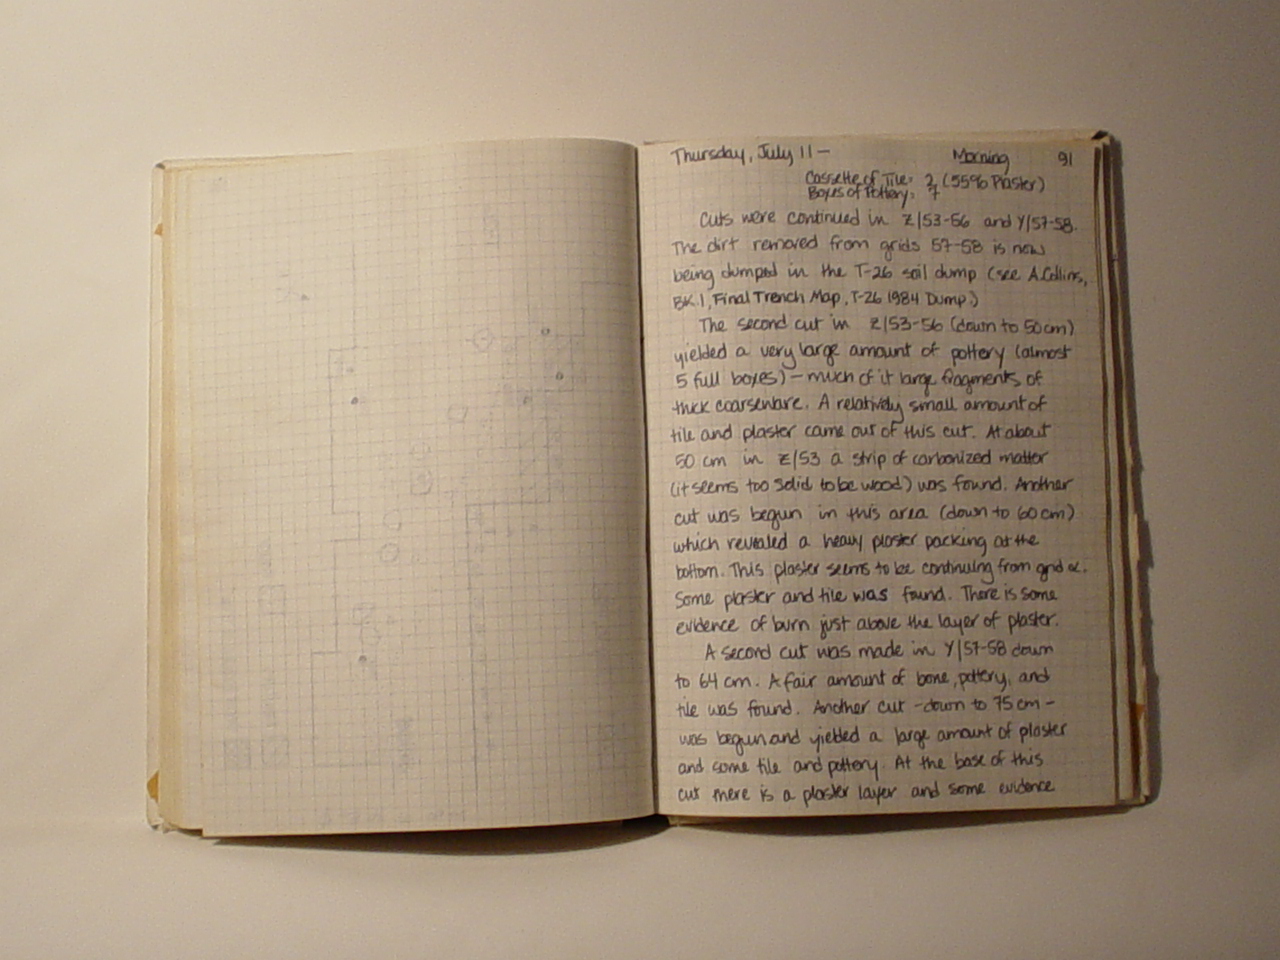 Thursday, July 11 — Morning 91
Cassette of Tile: 2 (55% Plaster)
Boxes of Pottery: 7
Cuts were continued in Z/53-56 and Y/57-58.
The dirt removed from grids 57-58 is now
being dumped in the T-26 soil dump (see A.Collins,
BK.1, Final Trench Map, T-26 1984 Dump.)
The second cut in Z/53-56 (down to 50cm)
yielded a very large amount of pottery (almost
5 full boxes) — much of it large fragments of
thick coarseware. A relatively small amount of
tile and plaster came out of this cut. At about
50 cm in Z/53 a strip of carbonized matter
(it seems too solid to be wood) was found. Another
cut was begun in this area (down to 60cm)
which revealed a heavy plaster packing at the
bottom. This plaster seems to be continuing from grid α.
Some plaster and tile was found. There is some
evidence of burn just above the layer of plaster.
A second cut was made in Y/57-58 down
to 64cm. A fair amount of bone, pottery, and
tile was found. Another cut -down to 75cm-
was begun and yielded a large amount of plaster
and some tile and pottery. At the base of this
cut there is a plaster layer and some evidence